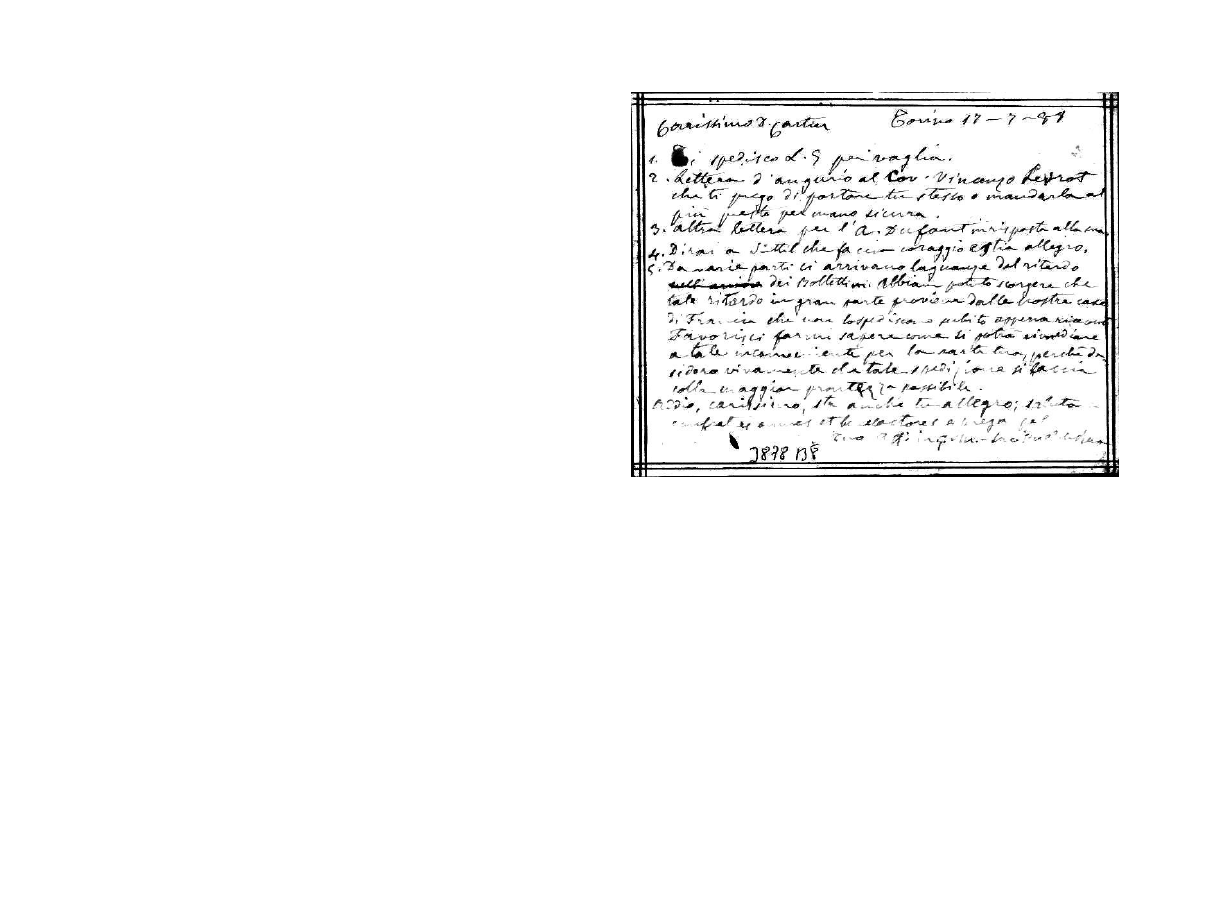 Carissimo D. Cartier Torino 17-7-98
1. Ti spedisco L. 5 per vaglia.
2. Lettera d'augurio al Cav. Vincenzo Levrot
che ti prego di portare tu stesso o mandarla al
più presto per mano sicura.
3. Altra lettera per l'A. Dufaut in risposta alla sua
4. Dirai a che faccia coraggio e stia allegro.
5. Da varie parti ci arrivano lagnanze del ritardo
dei Bollettini. Abbiam potuto scorgere che
tale ritardo in gran parte proviene dalle nostre case
di Francia che non lo spediscono subito appena
Favorisci farmi sapere come si potrà rimediare
a tale inconveniente per la parte tua, perchè de
sidero vivamente che tale spedizione si faccia
colla maggior prontezza possibile.
Addio, carissimo, sta anche tu allegro; saluta
omnes et e prega pel
tuo aff. in
3878 B8